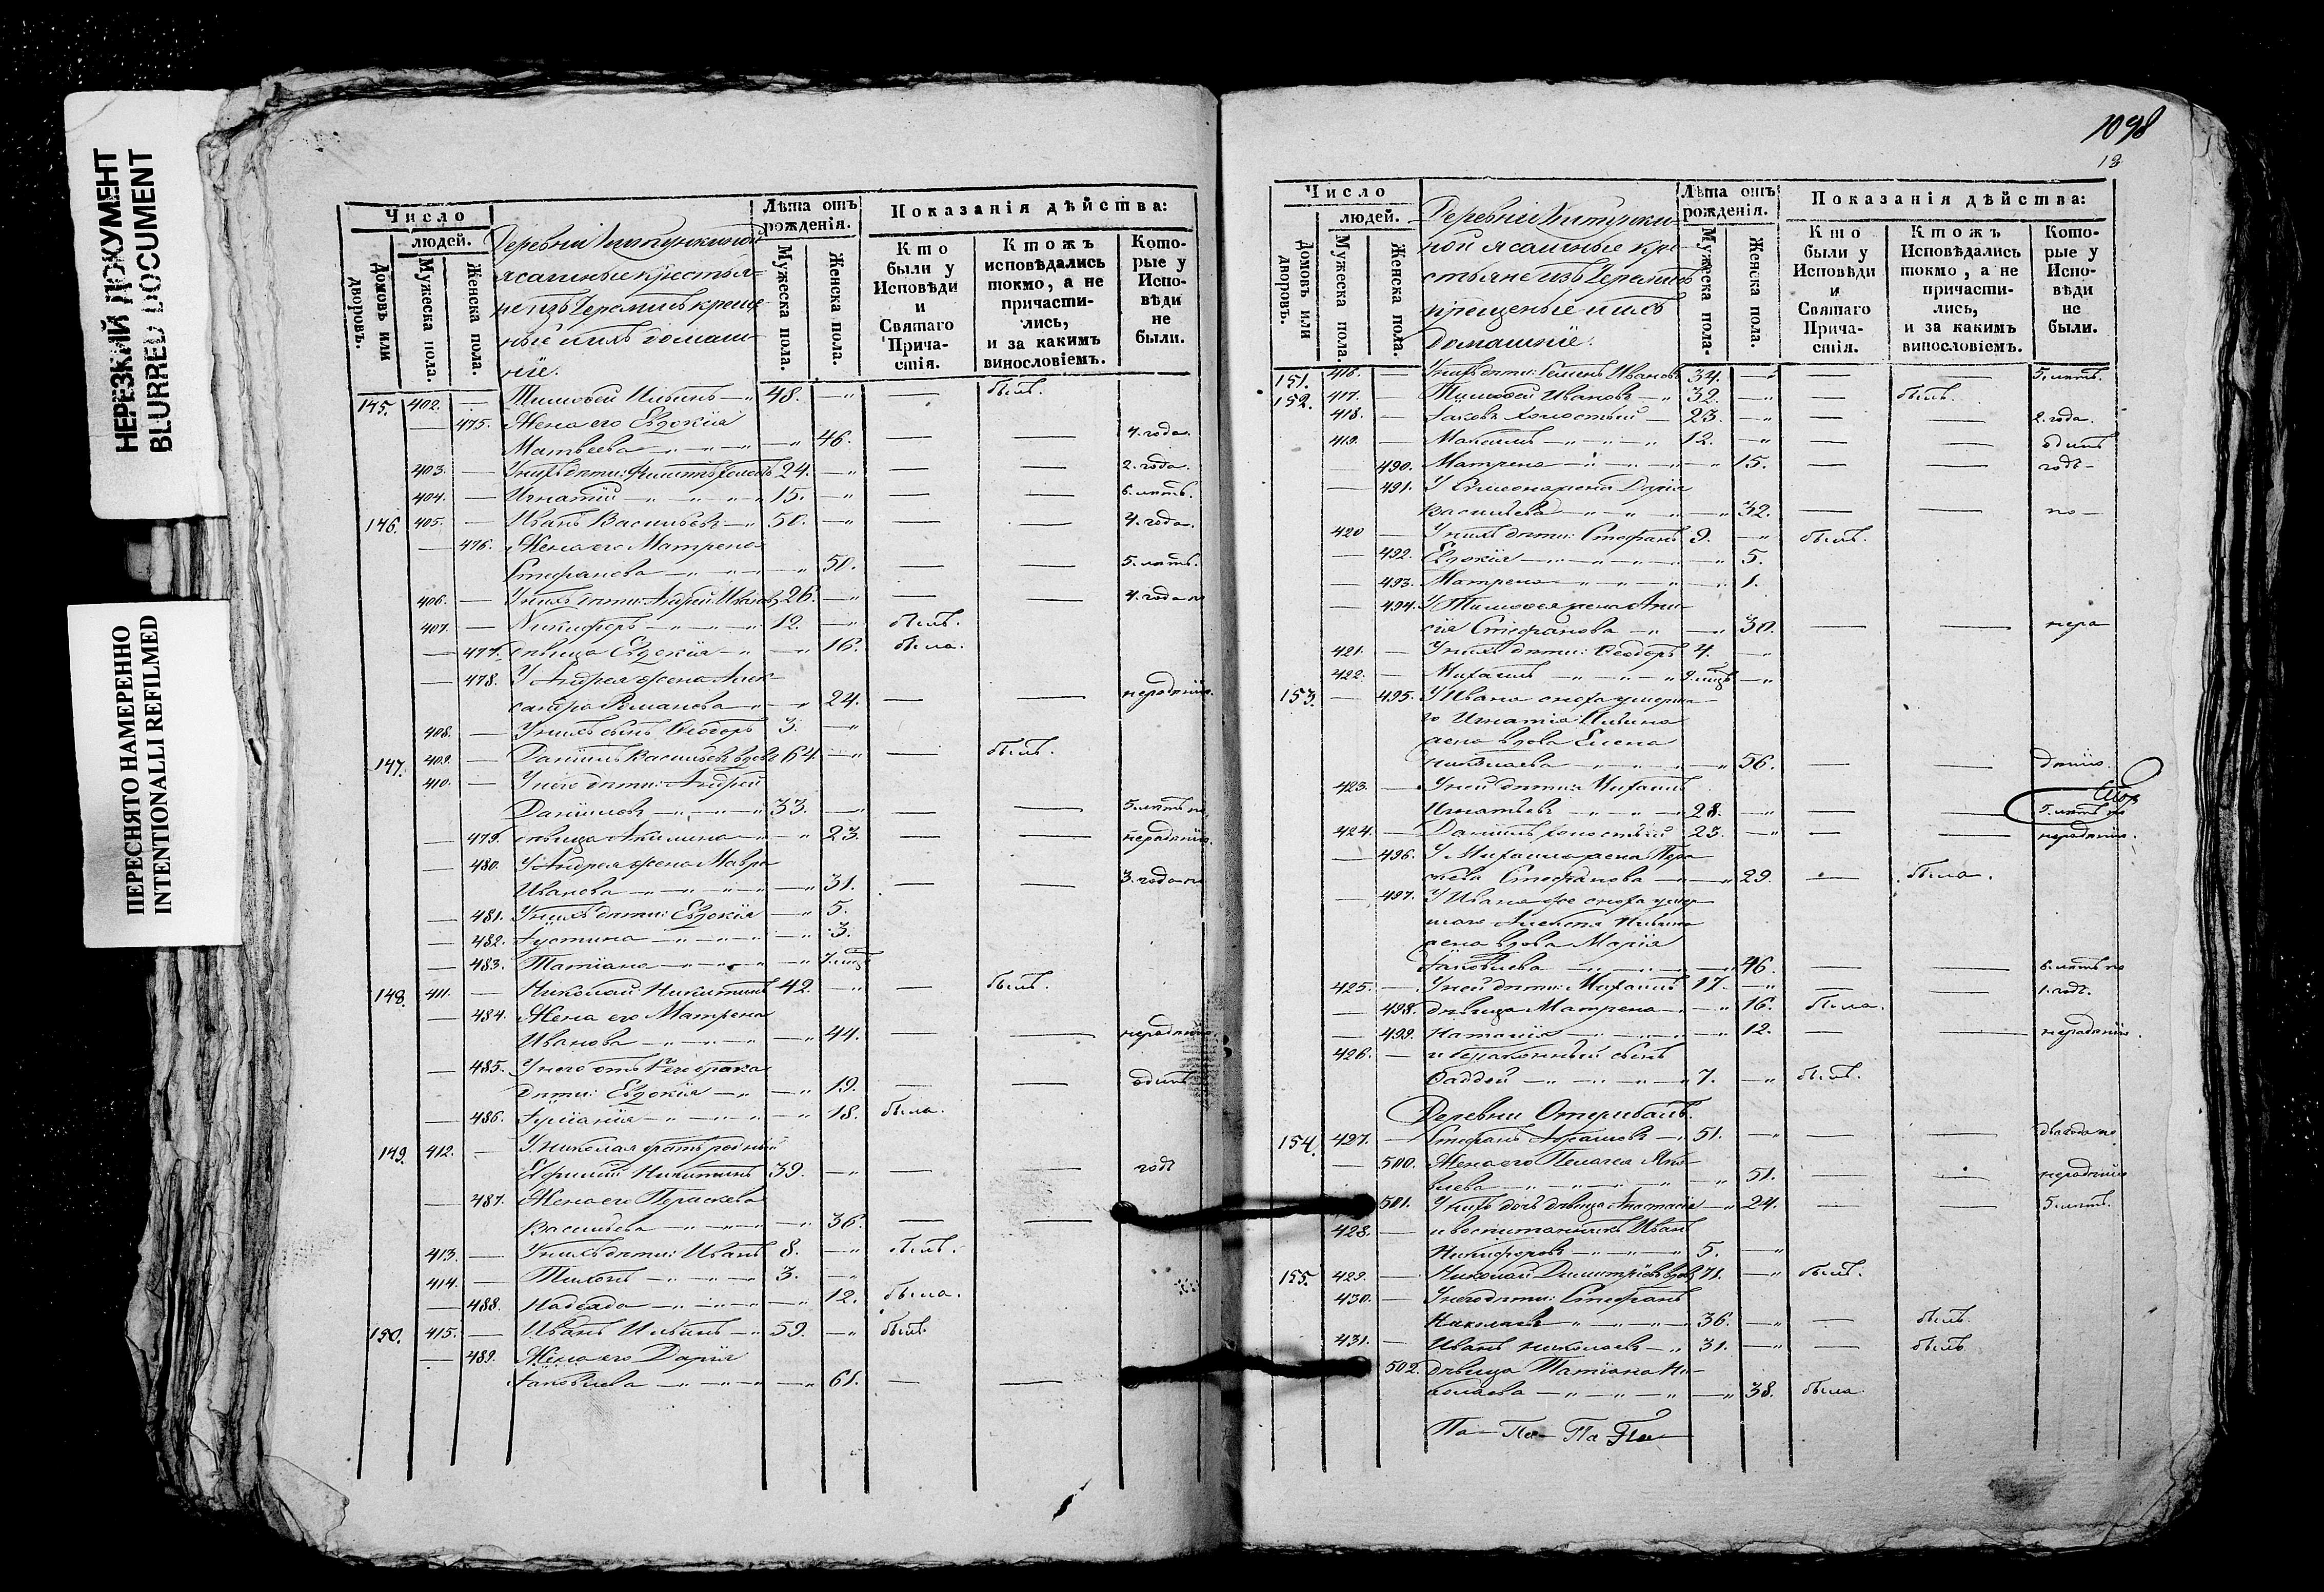 НЕРЕЗКИЙ ДОКУМЕНТ
BLURRED DOCUMENT
ПЕРЕСНЯТО НАМЕРЕННО
INTENTIONALLI REFILMED
Число
людей.
Домовъ или дворовъ.
Мужеска пола.
Женска пола.
Деревни
ясашные крестья-
не изъ Черемисъ креще-
ные и ихъ домаш-
ніе.
Лѣта отъ рожденія.
Мужеска пола.
Женска пола.
Показанія дѣйства:
Кто были у Исповѣди и Святаго Прича-стія.
Ктожъ исповѣдались токмо, а не причасти-лись, и за какимъ винословіемъ.
Кото-рые у Испо-вѣди не были.
145. 402. — Тимофей Ильинъ 48. — — былъ.
— 475. Жена его Евдокія
Матвеева — 46. — — 4. года.
403. — У нихъ дѣти: 24. — — — 2. года.
404. — Игнатій 15. — — — 6. лѣтъ.
146. 405. — Иванъ Васильевъ 50. — — — 4. года.
— 476. Жена его Матрена
Стефанова — 50. — — 5. лѣтъ.
406. — У нихъ дѣти: Андрей Ивановъ 26. — — — 4. года по
407. — Никифоръ 12. — былъ.
— 477. дѣвица Евдокія — 16. была.
— 478. У Андрея жена Алек-
сандра Романова — 24. — — нерадѣнію.
408. — У нихъ сынъ Ѳеодоръ 3. —
147. 409. — Даніилъ Васильевъ вдовъ 64. — — былъ.
410. — У него дѣти: Андрей
Даниловъ 33. — — — 5. лѣтъ по
— 479. дѣвица Акилина — 23. — — нерадѣнію.
— 480. У Андрея жена Мавра
Иванова — 31. — — 3. года по
— 481. У нихъ дѣти: Евдокія — 5.
— 482. Іустина — 3.
— 483. Татіана —
148. 411. — Николай Никитинъ 42. — — былъ.
— 484. Жена его Матрена
Иванова — 44. — — нерадѣнію.
— 485. У него отъ 1го брака
дѣти: Евдокія — 19. — — одинъ
— 486. Іуліанія — 18. была.
149. 412. — У Николая братъ родный
Ефимій Никитинъ 39. — — — годъ
— 487. Жена его Параскева
Васильева — 36. — —
413. — У нихъ дѣти: Иванъ 8. — былъ.
414. — Тихонъ 3. —
— 488. Надежда — 12. была.
150. 415. — Иванъ Ильинъ 59. — былъ.
— 489. Жена его Дарія
Іаковлева — 61. — —
1098
12
Число
людей.
Домовъ или дворовъ.
Мужеска пола.
Женска пола.
Деревни
ной ясашные кре-
стьяне изъ Черемисъ
крещеные и ихъ
Домашніе.
Лѣта отъ рожденія.
Мужеска пола.
Женска пола.
Показанія дѣйства:
Кто были у Исповѣди и Святаго Прича-стія.
Ктожъ Исповѣдались токмо, а не причасти-лись, и за какимъ винословіемъ.
Кото-рые у Испо-вѣди не были.
151. 416. — У нихъ дѣти: Семенъ Ивановъ 34. — — — 5. лѣтъ.
152. 417. — Тимофей Ивановъ 32. — — былъ.
418. — Іаковъ холостый 23. — — — 2. года.
419. — Максимъ 12. — — — одинъ
490. Матрена — 15. — — годъ
— 491. У Симеона жена Дарія
Васильева — 32. — — по
420 — У нихъ дѣти: Стефанъ 9. — былъ.
— 492. Евдокія — 5.
— 493. Матрена — 1.
— 494. У Тимофея жена Ани-
сія Стефанова — 30. — — нера
421. — У нихъ дѣти: Ѳеодоръ 4. —
422. — Михаилъ —
153. — 495. У Ивана сноха умерша-
го Игнатія Ильина
жена вдова Елена
Николаева — 56. — — дѣнію.
423. — У ней дѣти: Михаилъ
Игнатьевъ 28. — — — 5. лѣтъ по
424. — Даніилъ холостый 23. — — — нерадѣнію.
— 496. У Михаила жена Пара-
скева Стефанова — 29. — была.
— 497. У Ивана же сноха умер-
шаго Ильина
жена вдова Марія
Іаковлева — 46. — — 6. лѣтъ по
425. — У ней дѣти: Михаилъ 17. — — — 1. годъ.
— 498. дѣвица Матрена — 16. была.
— 499. Наталія — 12. — — нерадѣнію.
426. — и незаконный сынъ
Фаддей 7. — былъ.
Деревни
154. 427. — Стефанъ 51. — — — два года по
— 500. Жена его Пелагія Яко-
влева — 51. — — нерадѣнію
501. У нихъ дочь дѣвица Анастасія — 24. — — 5. лѣтъ.
428. — и воспитанникъ Иванъ
Никифоровъ 5. —
155. 429. — Николай Димитріевъ вдовъ 71. — былъ.
430. — У него дѣти: Стефанъ
Николаевъ 36. — — былъ.
431. — Иванъ Николаевъ 31. — — былъ
502. дѣвица Татіана Ни-
колаева — 38. была.